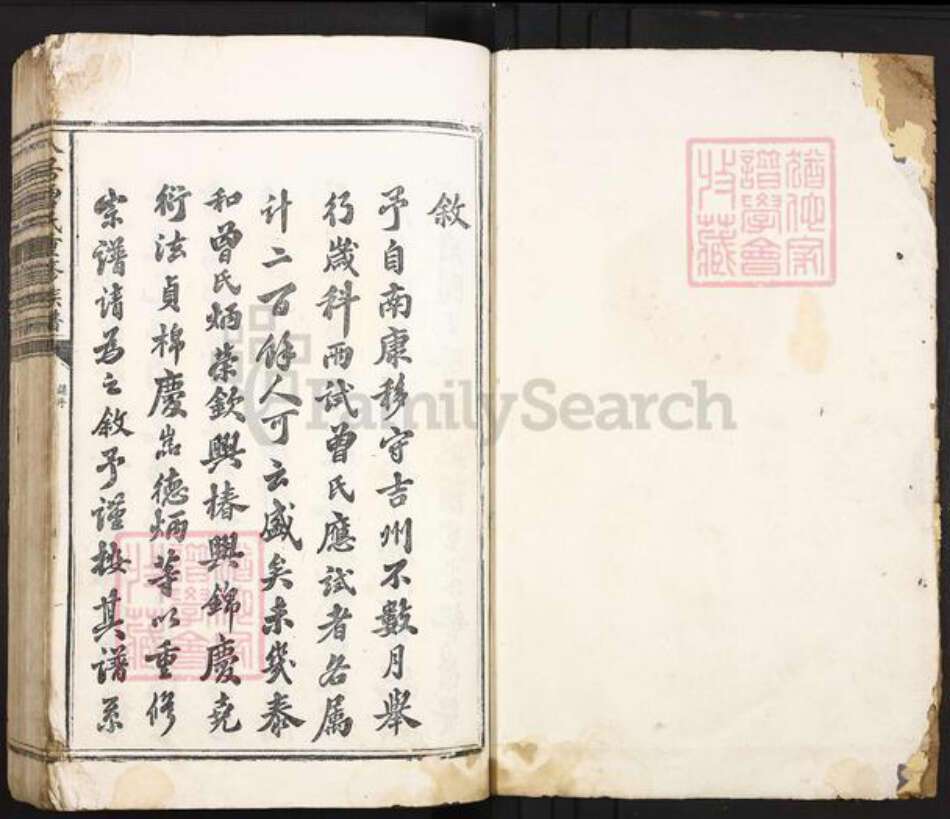 敘
予自南康移守吉州不數月舉
行歲科兩試曾氏應試者各屬
計二百餘人可云盛矣未幾泰
和曾氏炳荣欽興椿興錦慶堯
衍法貞棉慶嵩德炳等以重修
宗譜請為之敘予謹按其譜系
譜學會
收藏
FamilySearch